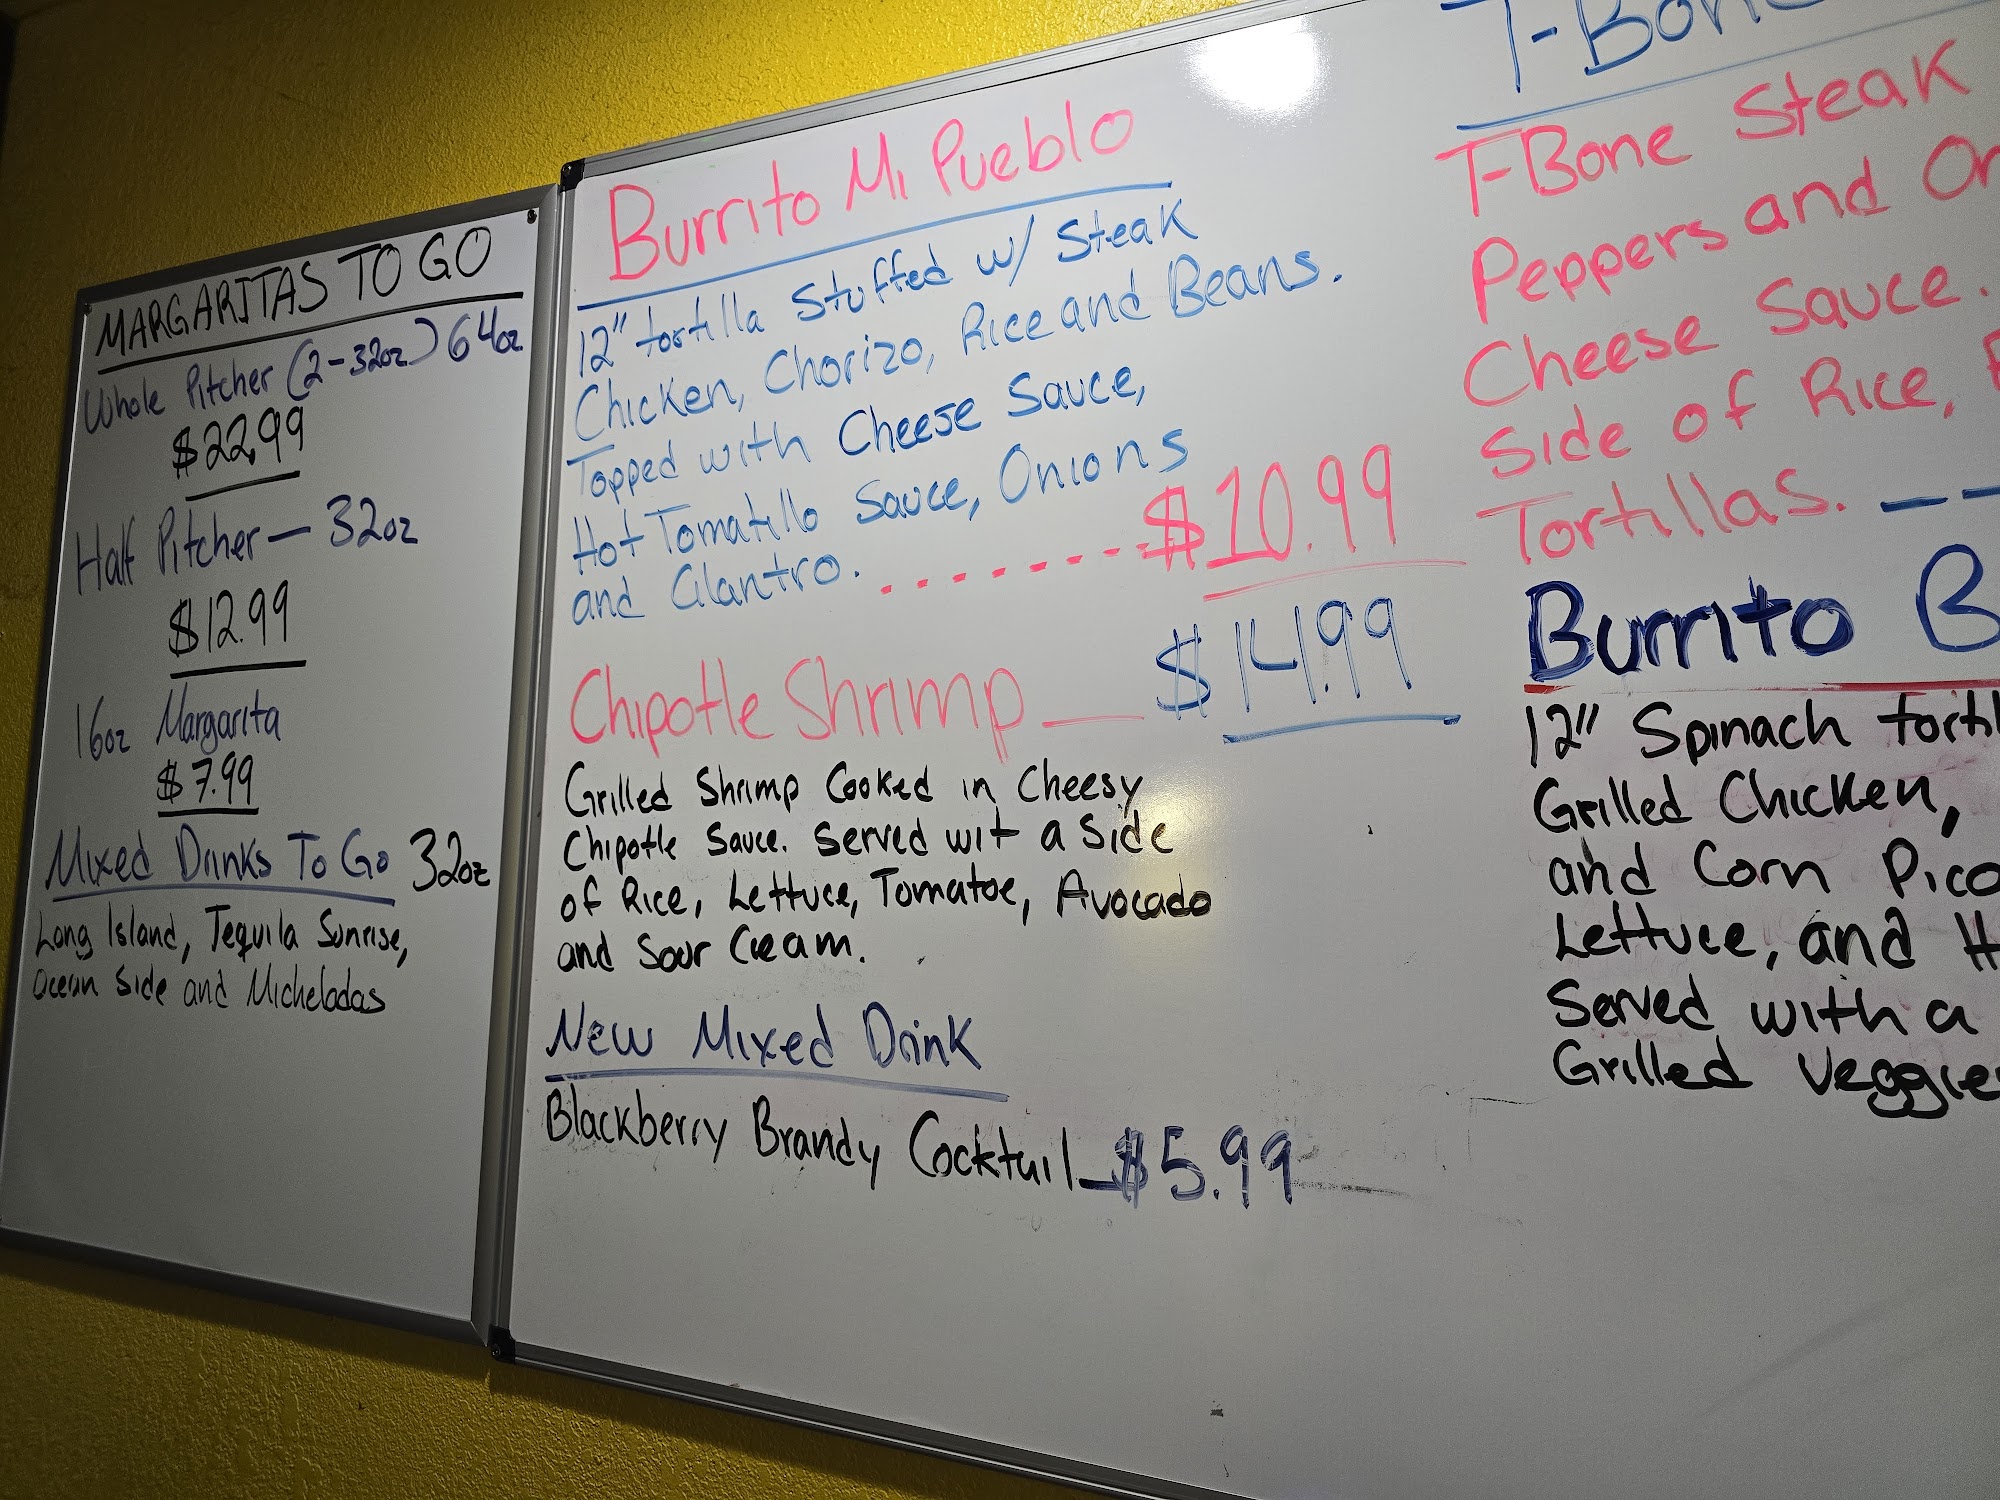 MARGARITAS TO GO
Whole Pitcher (2-32oz) 64oz
$22.99
Half Pitcher — 32oz
$12.99
16oz Margarita
$7.99
Mixed Drinks To Go 32oz
Long Island, Tequila Sunrise,
Ocean Side and Micheladas
Burrito Mi Pueblo
12" tortilla Stuffed w/ Steak
Chicken, Chorizo, Rice and Beans.
Topped with Cheese Sauce,
Hot Tomatillo Sauce, Onions
and Cilantro. - - - - - - - - $10.99
Chipotle Shrimp — $14.99
Grilled Shrimp Cooked in Cheesy
Chipotle Sauce. Served wit a Side
of Rice, Lettuce, Tomatoe, Avocado
and Sour Cream.
New Mixed Drink
Blackberry Brandy Cocktail — $5.99
T-Bone
T-Bone Steak
Peppers and On
Cheese Sauce.
Side of Rice,
Tortillas. — —
Burrito B
12" Spinach tortil
Grilled Chicken,
and Corn Pico
Lettuce, and H
Served with a
Grilled Veggie